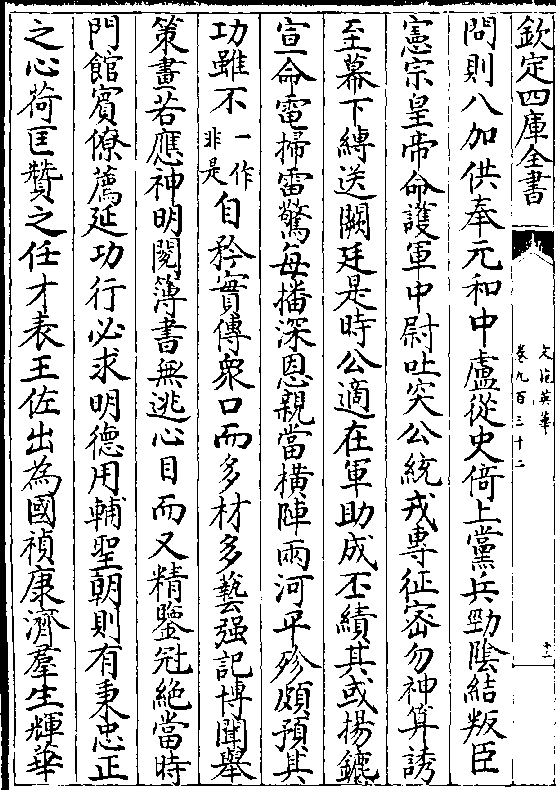 欽定四庫全書
文苑英華
卷九百三十二
十二
問則八加供奉元和中盧從史倚上黨兵勁陰結叛臣
憲宗皇帝命護軍中尉吐突公統戎專征密勿神算誘
至幕下縛送闕廷是時公適在軍助成丕績其或揚鑣
宣命電掃雷驚每播深恩親當橫陣兩河平殄頗預其
功雖不一作非是自矜實傳衆口而多材多藝强記博聞舉
策畫若應神明閱簿書無逃心目而又精鑒冠絶當時
門館賓僚薦延功行必求明德用輔聖朝則有秉忠正
之心荷匡贊之任才表王佐出為國禎康濟羣生輝華